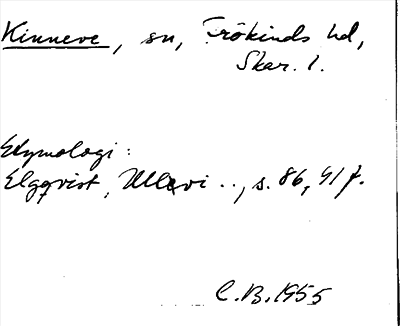 Kinneve, sn, Frökinds hd,
Skar. l.
Etymologi:
Elgqvist, Ullavi .., s. 86, 41 f.
C.B. 1955